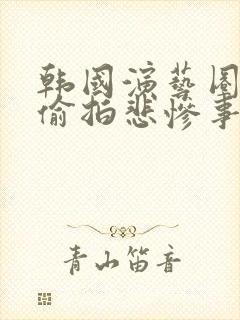 韩國演藝圈
偷拍悲惨事
青山笛音